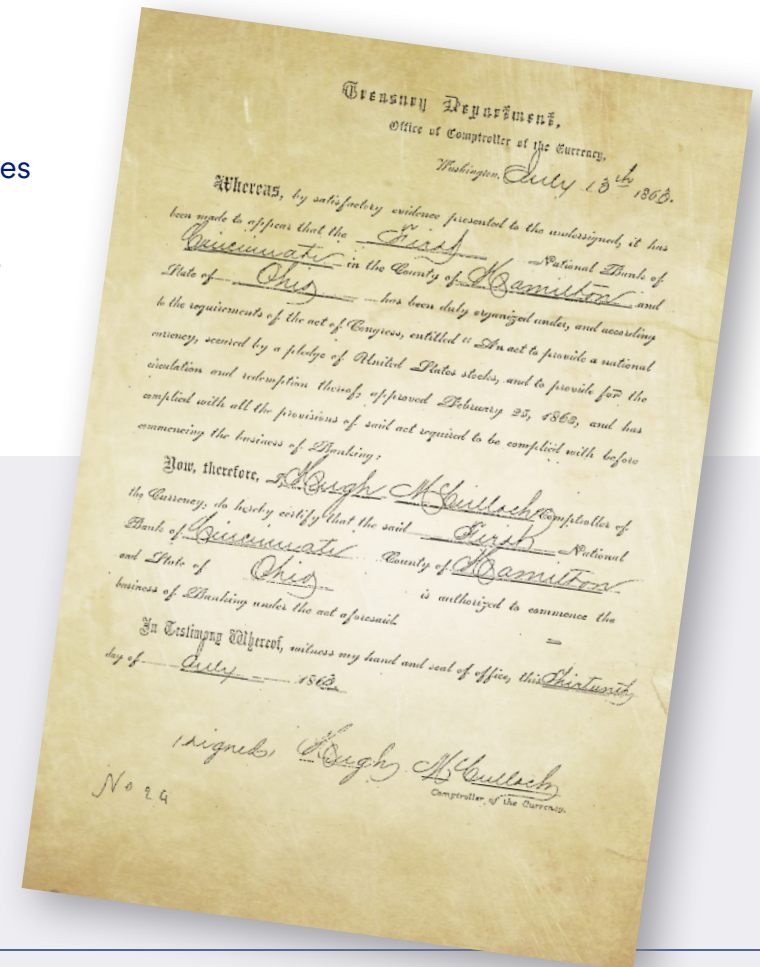 es
Treasury Department,
Office of Comptroller of the Currency,
Washington, July 13th 1863.
Whereas, by satisfactory evidence presented to the undersigned, it has
been made to appear that the First National Bank of
Cincinnati in the County of Hamilton and
State of Ohio has been duly organized under, and according
to the requirements of the act of Congress, entitled "An act to provide a national
currency, secured by a pledge of United States stocks, and to provide for the
circulation and redemption thereof; approved February 25, 1863, and has
complied with all the provisions of said act required to be complied with before
commencing the business of Banking:
Now, therefore, I Hugh McCulloch Comptroller of
the Currency, do hereby certify that the said First National
Bank of Cincinnati County of Hamilton
and State of Ohio is authorized to commence the
business of Banking under the act aforesaid.
In Testimony Whereof, witness my hand and seal of office, this Thirteenth
day of July 1863.
signed, Hugh McCulloch
Comptroller of the Currency.
No 24